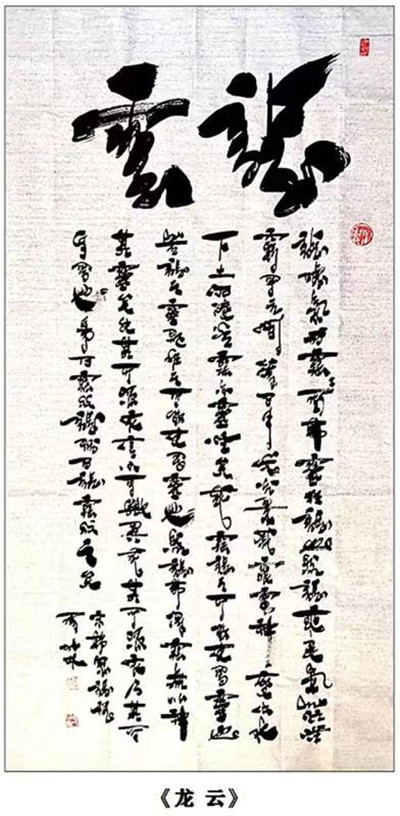 龍雲
龍噓氣成雲雲固弗靈於龍也然龍乘是氣茫洋
窮乎玄間薄日月伏光景感震電神變化水
下土汩陵谷雲亦靈怪矣哉雲龍之所能使為靈也
若龍之靈則非雲之所能使為靈也然龍弗得雲無以神
其靈矣失其所憑依信不可歟異哉其所憑依乃其所
自為也易曰雲從龍既曰龍雲從之矣
《龙 云》